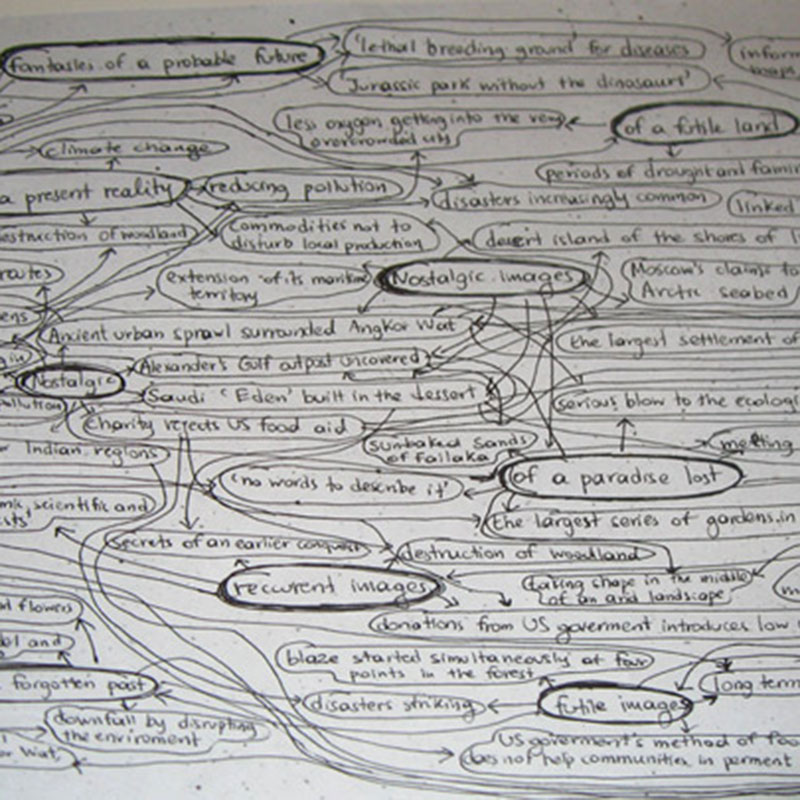 fantasies of a probable future
'lethal breeding ground' for diseases
inform
maps
'Jurassic park without the dinosaurs'
less oxygen getting into the very
overcrowded
of a futile land
climate change
periods of drought and famin
a present reality
reducing pollution
disasters increasingly common
linked
estruction of woodland
Commodities not to
disturb local production
desert island of the shores of
routes
extension of its maritime
territory
Nostalgic images
Moscow's claims to
Arctic seabed
ens
Ancient urban sprawl surrounded Angkor Wat
the largest settlement of
gin
Alexander's Gulf outpost uncovered
Nostalgic
Saudi 'Eden' built in the dessert
serious blow to the ecologi
pollution
Charity rejects US food aid
or Indian regions
sunbaked sands
of failaka
melting
'no words to describe it'
of a paradise lost
mic, scientific and
sts'
the largest series of gardens in
secrets of an earlier conquest
destruction of woodland
recurent images
taking shape in the middle
of an arid landscape
d flowers
donations from US goverment introduces low
ol and
blaze started simultaneously at four
points in the forest
forgotten past
long term
disasters striking
futile images
downfall by disrupting
the enviroment
or Wat,
US goverment's method of foo
does not help communities in perment